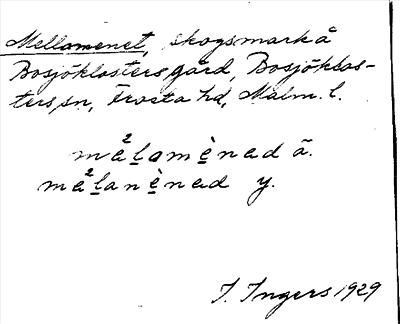 Mellamenet, skogsmark å
Bosjöklosters gård, Bosjöklos-
ters sn, Frosta hd, Malm. l.
mä²lamènad ä.
mä²lanènad y.
I. Ingers 1929